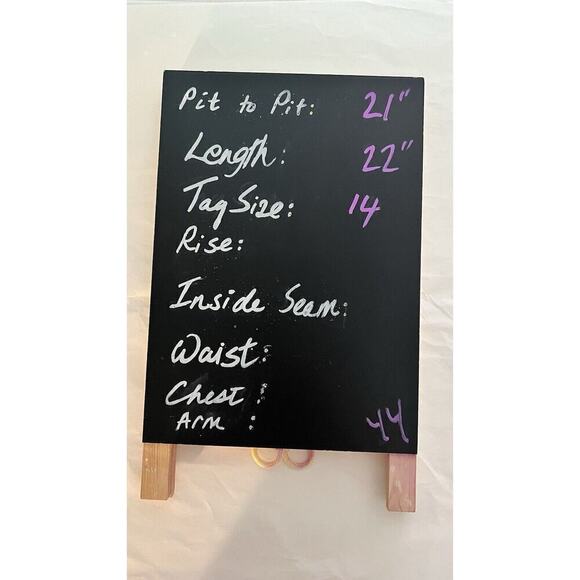 Pit to Pit: 21"
Length: 22"
Tag Size: 14
Rise:
Inside Seam:
Waist:
Chest:
Arm : 44